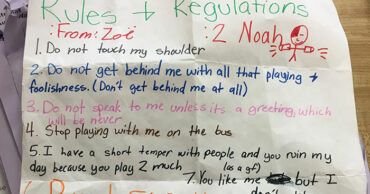 Rules + Regulations
:From: Zoë :2 Noah
1. Do not touch my shoulder
2. Do not get behind me with all that playing +
foolishness. (Don't get behind me at all)
3. Do not speak to me unless its a greeting, which
will be never
4. Stop playing with me on the bus
5. I have a short temper with people and you ruin my
day because you play 2 much (as a gf)
7. You like me but I